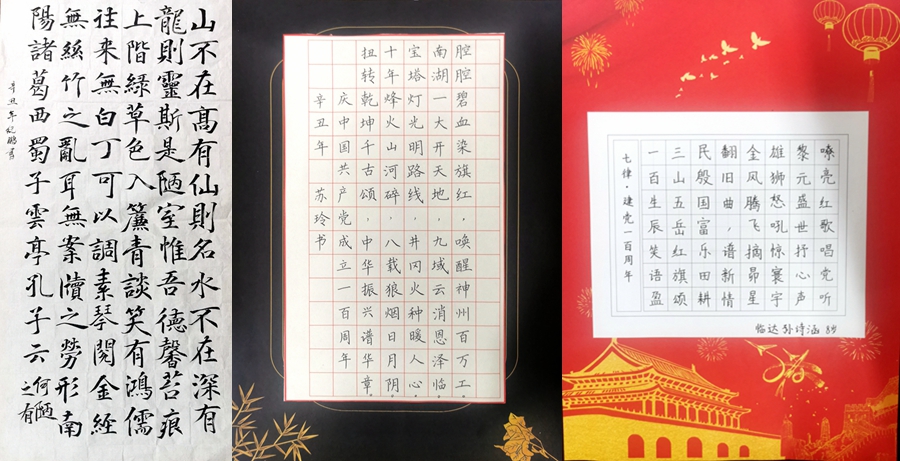 山不在髙有仙則名水不在深有
龍則靈斯是陋室惟吾德馨苔痕
上階綠草色入簾青談笑有鴻儒
往来無白丁可以調素琴閱金經
無絲竹之亂耳無案牘之勞形南
陽諸葛西蜀子雲亭孔子云何陋之有
辛丑年
腔腔碧血染旗红，唤醒神州百万工。
南湖一大开天地，九域云消恩泽临。
宝塔灯光明路线，井冈火种暖人心。
十年烽火山河碎，八载狼烟日月阴。
扭转乾坤千古颂，中华振兴谱华章。
庆中国共产党成立一百周年
辛丑年 苏玲书
嘹亮红歌唱党听
黎元盛世抒心声
雄狮怒吼惊寰宇
金风腾飞摘昴星
翻旧曲，谱新情
民殷国富乐田耕
三山五岳红旗颂
一百生辰笑语盈
七律·建党一百周年
临达 孙诗涵